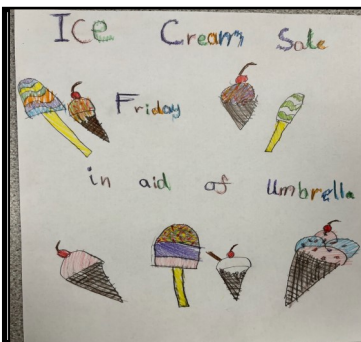 Ice Cream Sale
Friday
in aid of Umbrella